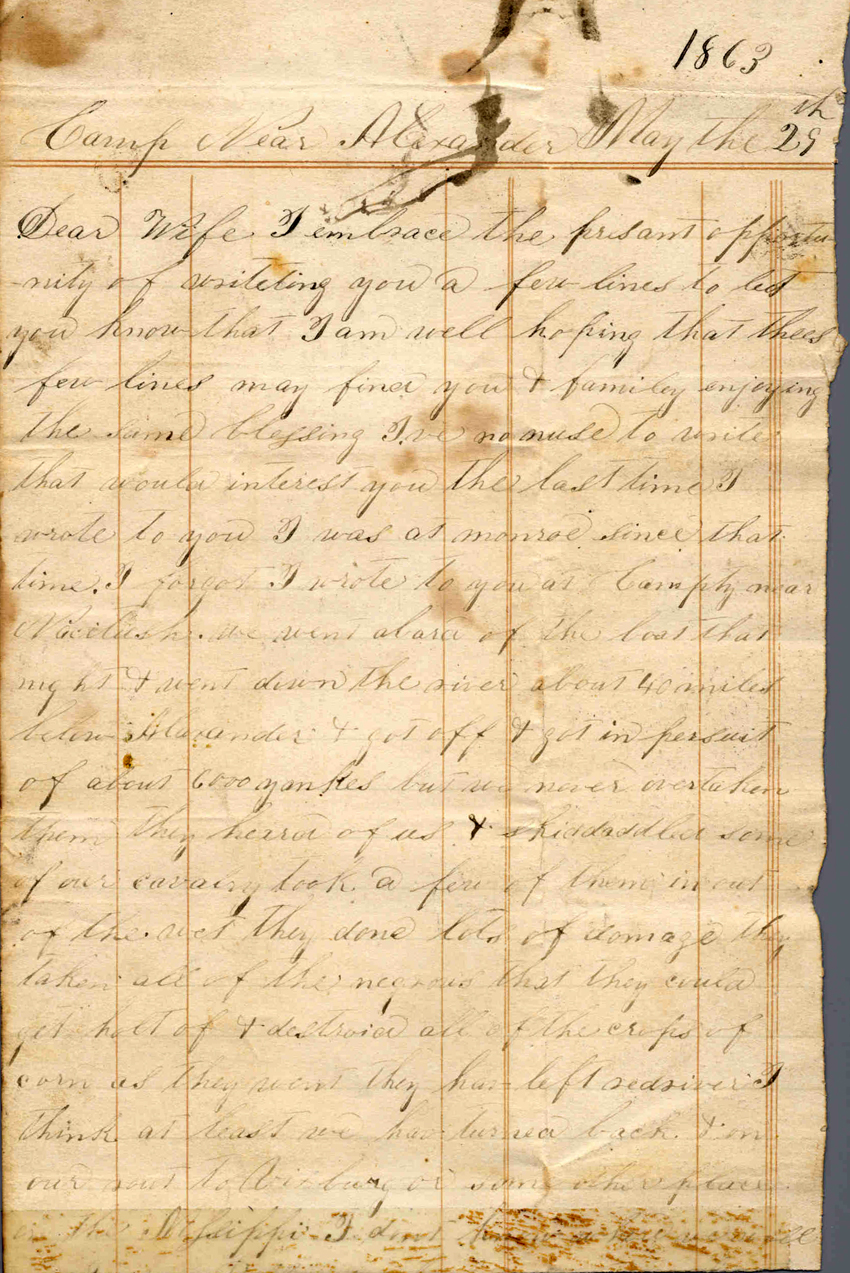 1863
Camp Near Alexander May the 29th
Dear Wife I embrace the prisant opportu
nity of writeting you a few lines to let
you know that I am well hoping that thees
few lines may fined you & familey enjoying
the same blessing I.ve no nuse to write
that would interest you the last time I
wrote to you I was at monroe since that
time. I forgot I wrote to you at Camp ty near
we went abard of the boat that
night & went down the river about 40 miles
below Alexander & got off & got in persuit
of about 6000 yankes but we never overtaken
them they heared of us & skiddaddled some
of our cavalry took a few of them in out
of the wet they done lots of domage they
taken all of the negrous that they could
get holt of & destroied all of the crops of
corn as they went they hav left redriver I
think at least we hav turned back & on
our rout to Vixburg or some other place
on the Missippi I dont know